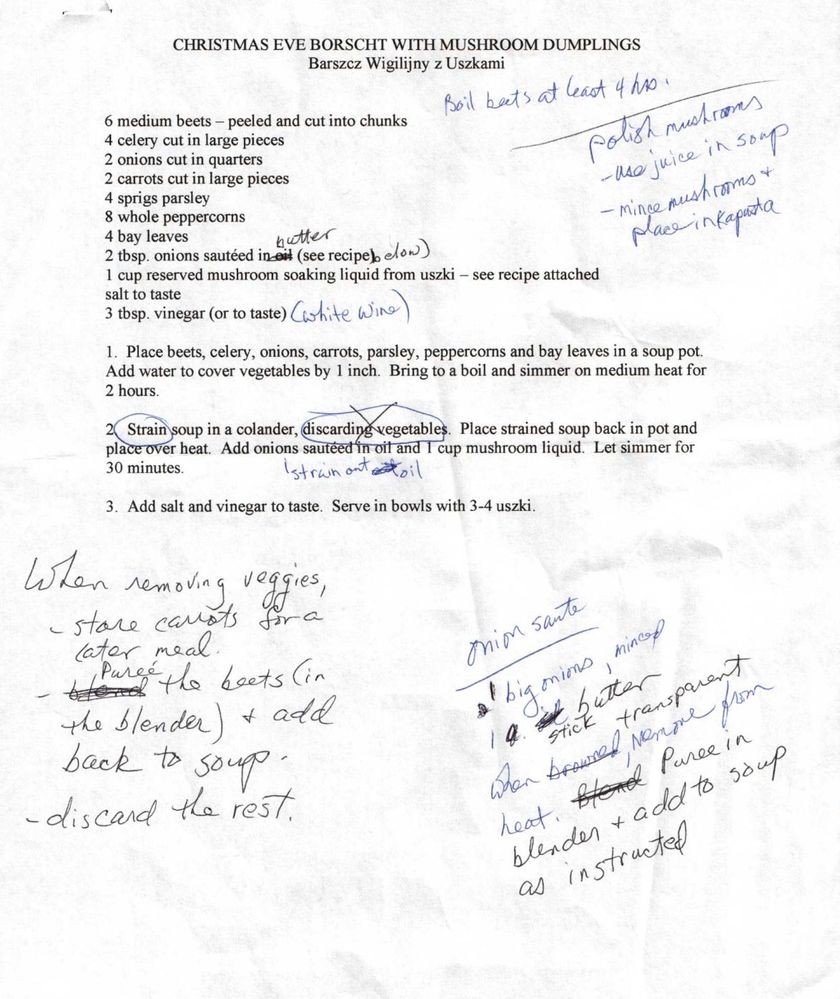 CHRISTMAS EVE BORSCHT WITH MUSHROOM DUMPLINGS
Barszcz Wigilijny z Uszkami
Boil beets at least 4 hrs.
polish mushrooms
- use juice in soup
- mince mushrooms +
place in Kapusta
6 medium beets – peeled and cut into chunks
4 celery cut in large pieces
2 onions cut in quarters
2 carrots cut in large pieces
4 sprigs parsley
8 whole peppercorns
4 bay leaves
butter
2 tbsp. onions sautéed in oil (see recipe below)
1 cup reserved mushroom soaking liquid from uszki – see recipe attached
salt to taste
3 tbsp. vinegar (or to taste) (white wine)
1. Place beets, celery, onions, carrots, parsley, peppercorns and bay leaves in a soup pot.
Add water to cover vegetables by 1 inch. Bring to a boil and simmer on medium heat for
2 hours.
2 Strain soup in a colander, discarding vegetables. Place strained soup back in pot and
place over heat. Add onions sautéed in oil and 1 cup mushroom liquid. Let simmer for
30 minutes.
strain out oil
3. Add salt and vinegar to taste. Serve in bowls with 3-4 uszki.
When removing veggies,
- store carrots for a
later meal.
Pureé
- blend the beets (in
the blender) + add
back to soup.
- discard the rest.
onion saute
1 big onions, minced
1 butter
stick transparent
when browned, remove from
heat. blend Puree in
blender + add to soup
as instructed